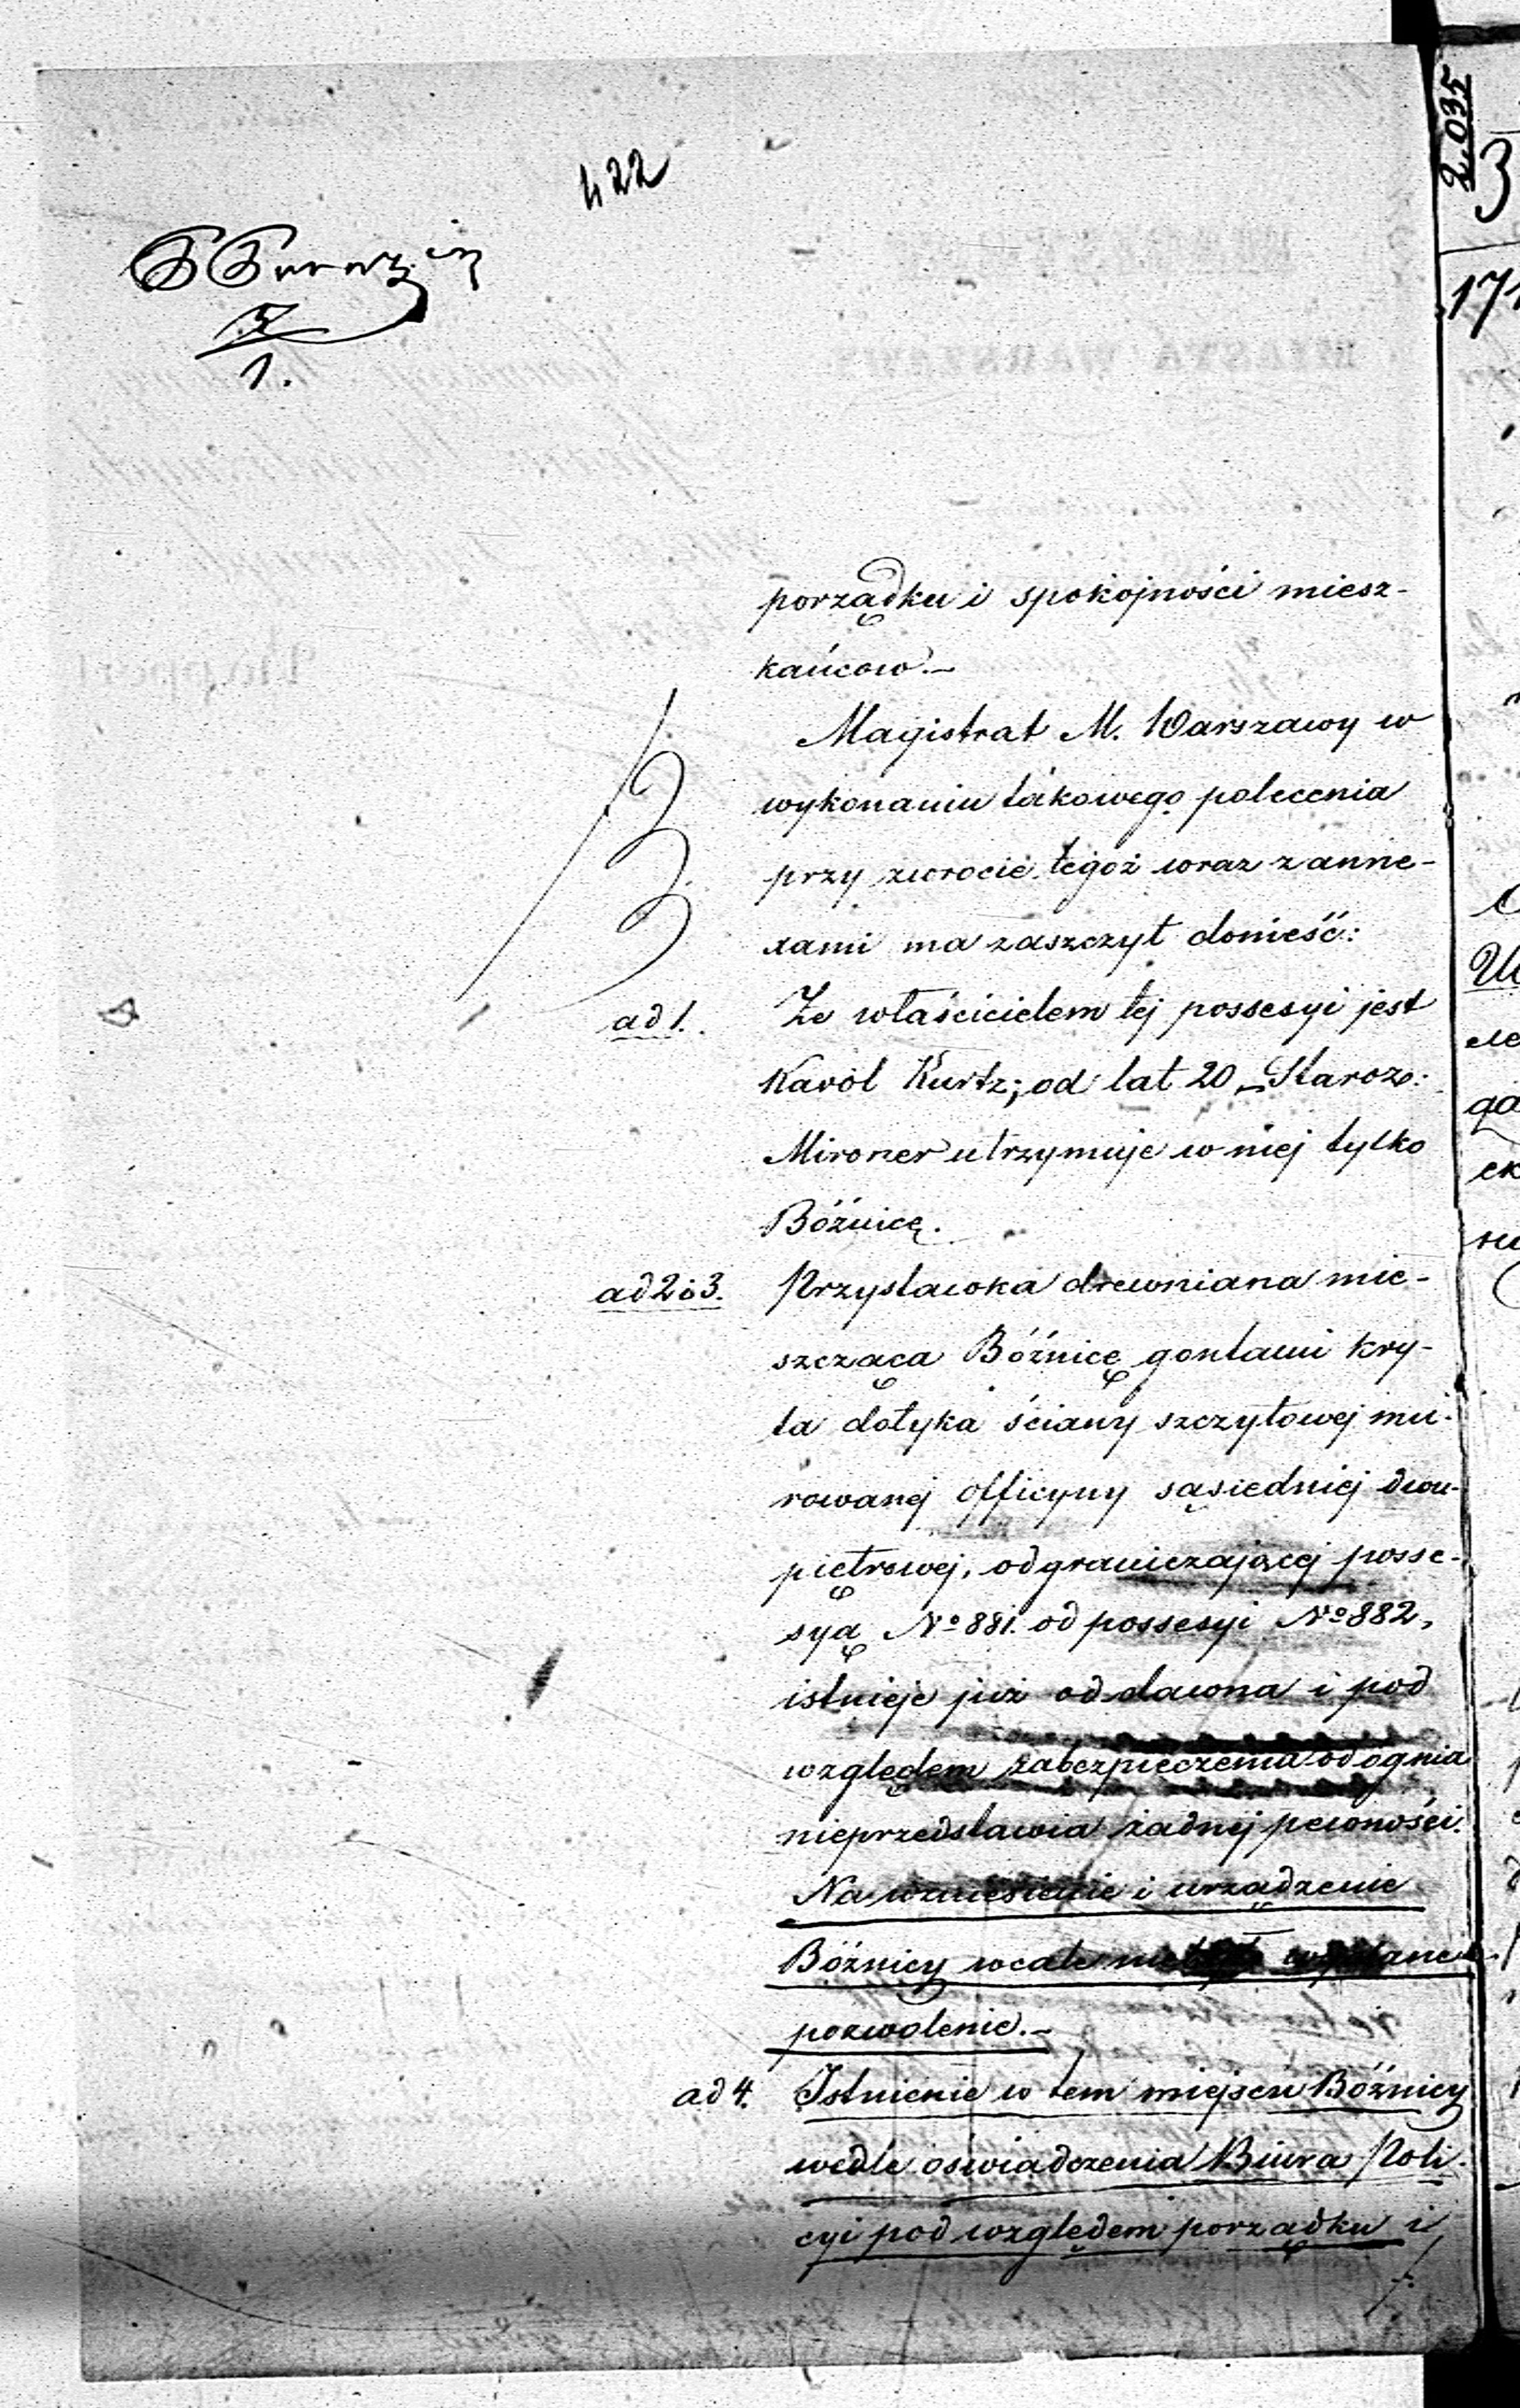 422
porządku i spokojności miesz-
kańców.-
Magistrat M. Warszawy w
wykonaniu takowego polecenia
przy zwrocie tegoż wraz z anne-
xami ma zaszczyt donieść:
ad 1. Że właścicielem tej possesyi jest
Karol Kurtz; od lat 20 Staroz:
Mironer utrzymuje w niej tylko
Bóżnicę.
ad 2 i 3. Przystawka drewniana mie-
szcząca Bóźnicę gontami kry-
ta dotyka ściany szczytowej mu-
rowanej officyny sąsiedniej dwu-
piętrowej, odgraniczającej posse-
syą No 881. od possesyi No 882,
istnieje już od dawna i pod
względem zabezpieczenia od ognia
nieprzedstawia żadnej pewności.
Na wzniesienie i urządzenie
Bóźnicy wcale
pozwolenie.-
ad 4. Istnienie w tem miejscu Bóźnicy
wedle oświadczenia Biura Poli-
cyi pod względem porządku i